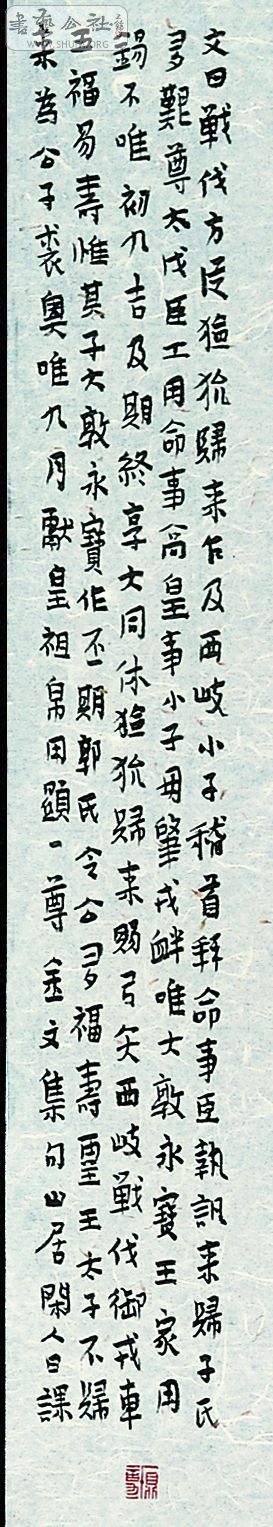 文曰戰伐方㝬玁狁歸來乍及西岐小子稽首拜命事臣執訊來歸子氏
多艱尊太戊臣工用命事尚皇事小子毋肇戎衅唯大敦永寶王家用
錫不唯初九吉及期終享大同休玁狁歸來賜弓矢西岐戰伐御戎車
三五福易壽惟其子大敦永寶作丕期郭氏令公多福壽里王太子不歸
來為公子裘奧唯九月獻皇祖帛用顯一尊 金文集句山居閑人日課
書藝公社